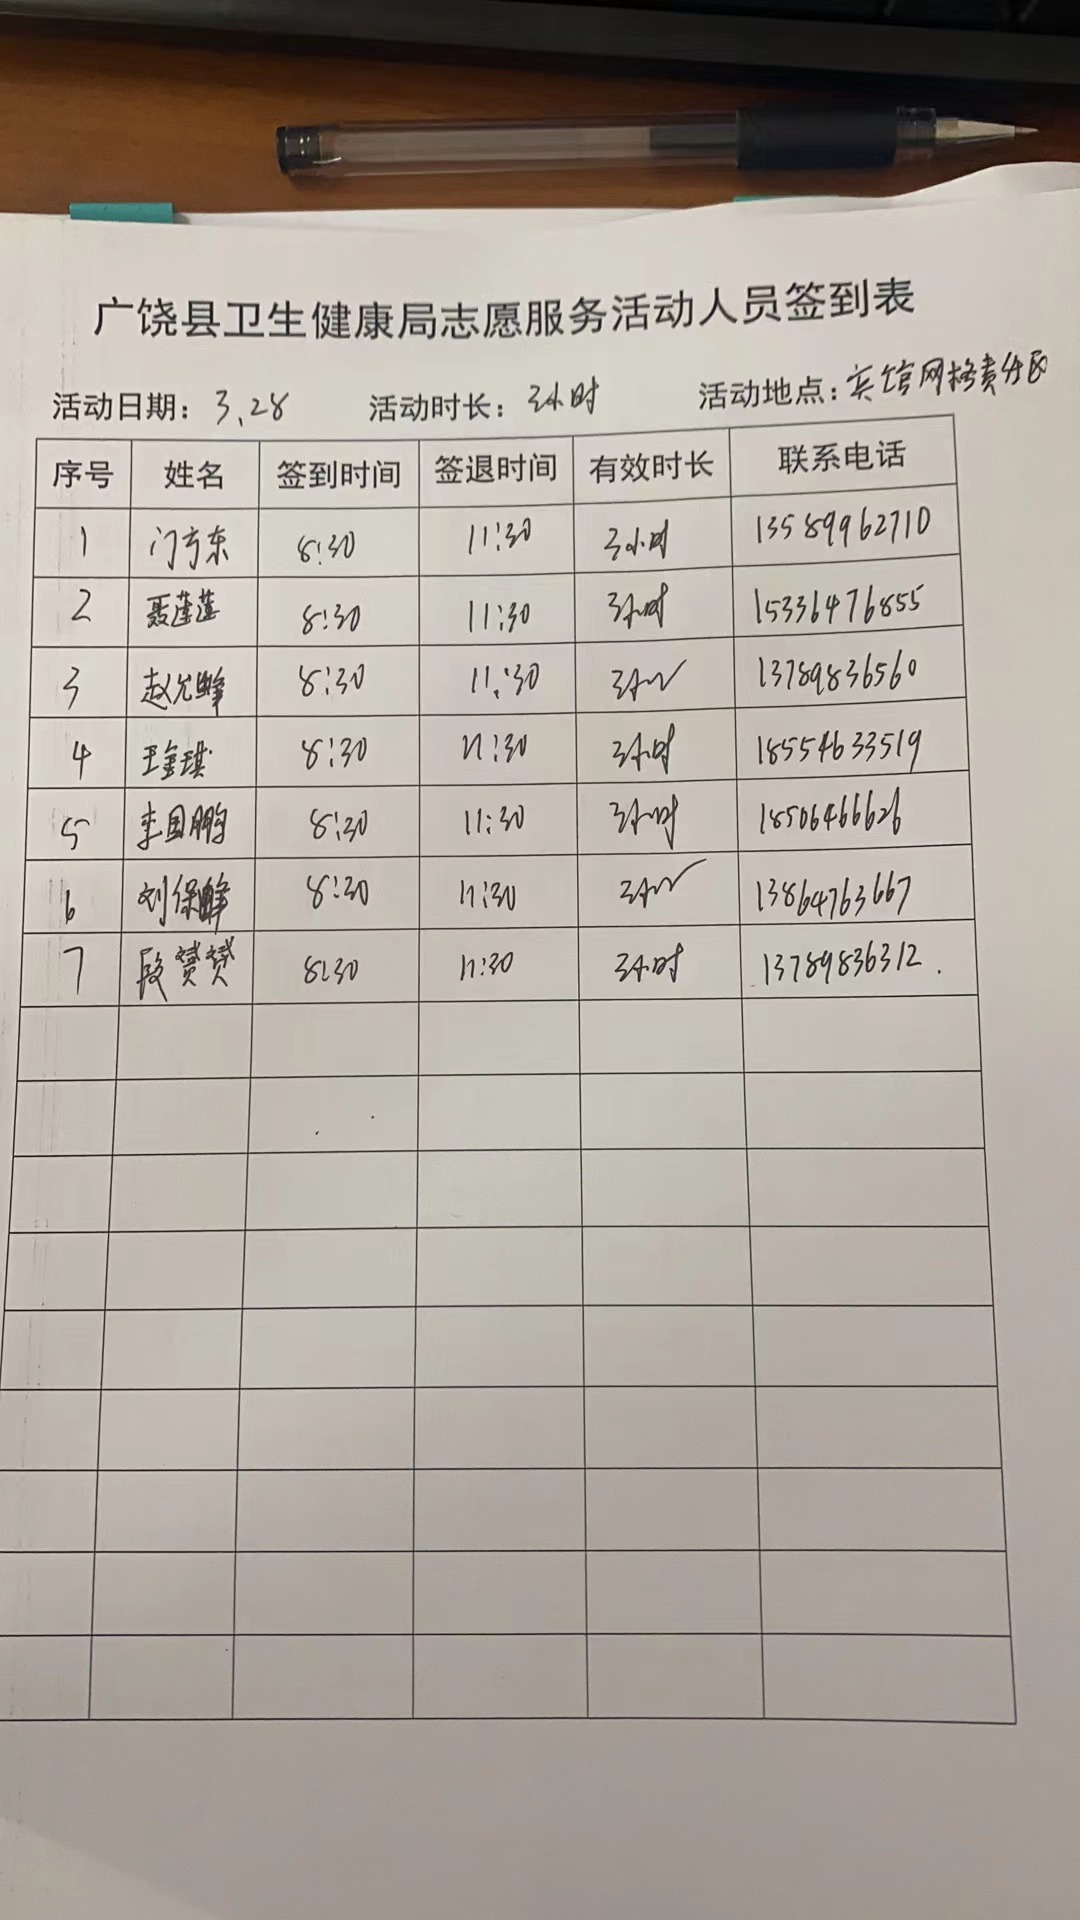 广饶县卫生健康局志愿服务活动人员签到表
活动日期：3.28 活动时长：3小时 活动地点：宾馆网格责任区
序号 姓名 签到时间 签退时间 有效时长 联系电话
1 门方东 8:30 11:30 3小时 13589962710
2 聂莲莲 8:30 11:30 3小时 15336476855
3 赵允峰 8:30 11:30 3小时 13789836560
4 王金琪 8:30 11:30 3小时 18554633519
5 李国鹏 8:30 11:30 3小时 18506466626
6 刘保峰 8:30 11:30 3小时 13864763667
7 段赟赟 8:30 11:30 3小时 13789836312.